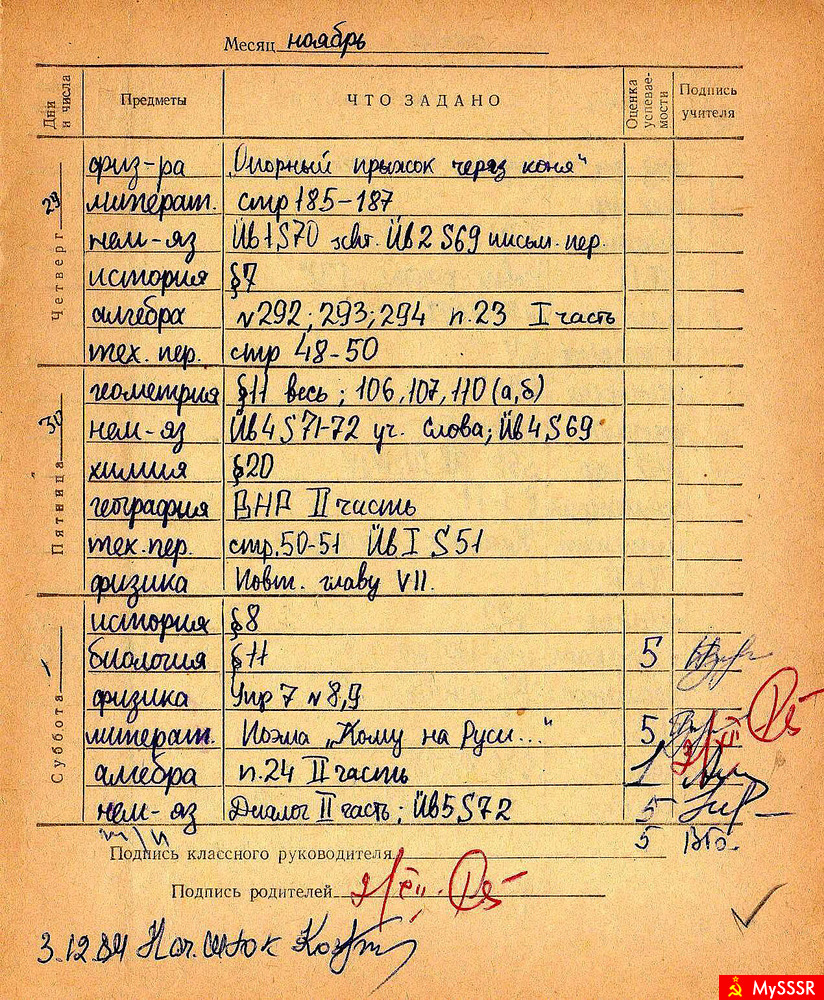 Месяц ноябрь
Дни и числа Предметы ЧТО ЗАДАНО Оценка успевае-мости Подпись учителя
Четверг 29
физ-ра „Опорный прыжок через коня"
литерат. стр 185-187
нем-яз Üb1S70 Üb2 S69 письм. пер.
история §7
алгебра N292; 293; 294 п.23 I часть
тех. пер. стр 48-50
Пятница 30
геометрия §11 весь; 106, 107, 110 (а,б)
нем-яз Üb4 S71-72 уч. слова; Üb4 S69
химия §20
география ВНР II часть
тех.пер. стр.50-51 Üb I S51
физика Повт. главу VII.
Суббота 1
история §8
биология §11 5
физика Упр 7 N 8,9
литерат. Поэма „Кому на Руси..." 5
алгебра п.24 II часть 1
нем-яз Диалог II часть; Üb5 S72 5
т/п 5
Подпись классного руководителя
Подпись родителей
3.12.84
MySSSR